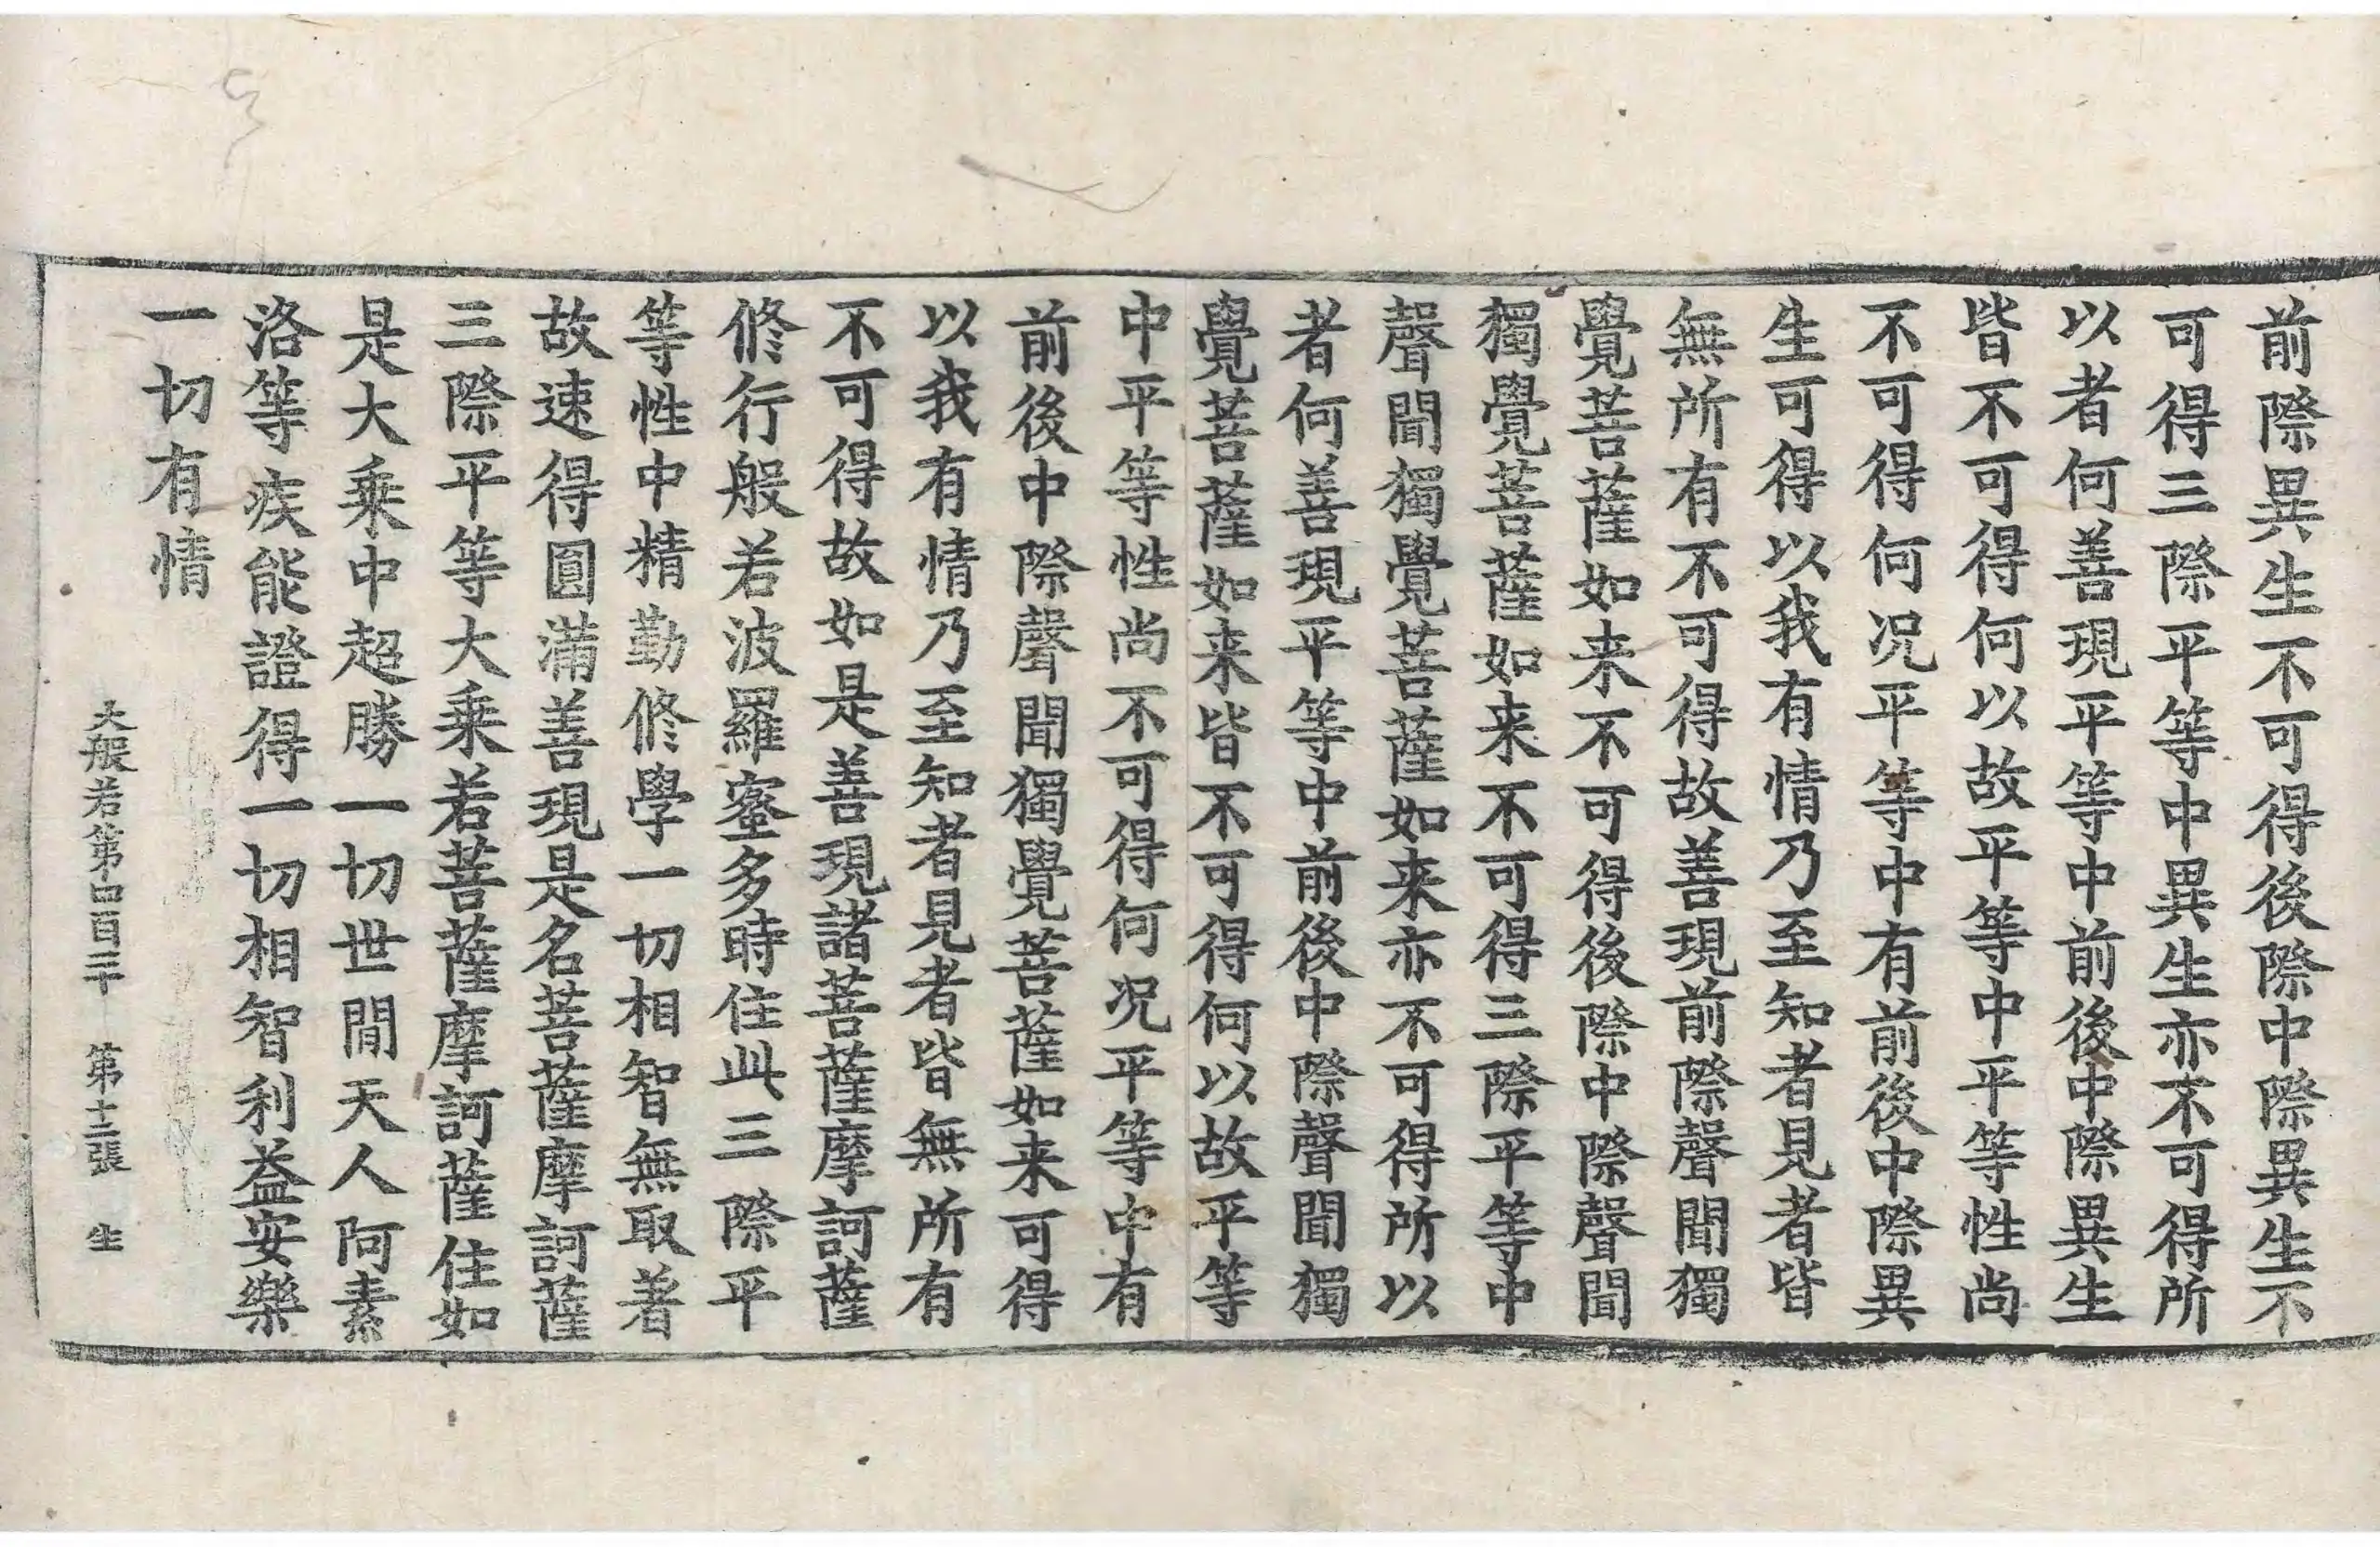 前際異生不可得後際中際異生不
可得三際平等中異生亦不可得所
以者何善現平等中前後中際異生
皆不可得何以故平等中平等性尚
不可得何况平等中有前後中際異
生可得以我有情乃至知者見者皆
無所有不可得故善現前際聲聞獨
覺菩薩如来不可得後際中際聲聞
獨覺菩薩如来不可得三際平等中
聲聞獨覺菩薩如来亦不可得所以
者何善現平等中前後中際聲聞獨
覺菩薩如来皆不可得何以故平等
中平等性尚不可得何况平等中有
前後中際聲聞獨覺菩薩如来可得
以我有情乃至知者見者皆無所有
不可得故如是善現諸菩薩摩訶薩
修行般若波羅蜜多時住此三際平
等性中精勤修學一切相智無取著
故速得圓滿善現是名菩薩摩訶薩
三際平等大乗若菩薩摩訶薩住如
是大乗中超勝一切世間天人阿素
洛等疾能證得一切相智利益安樂
一切有情
大般若第四百二十 第十三張 生